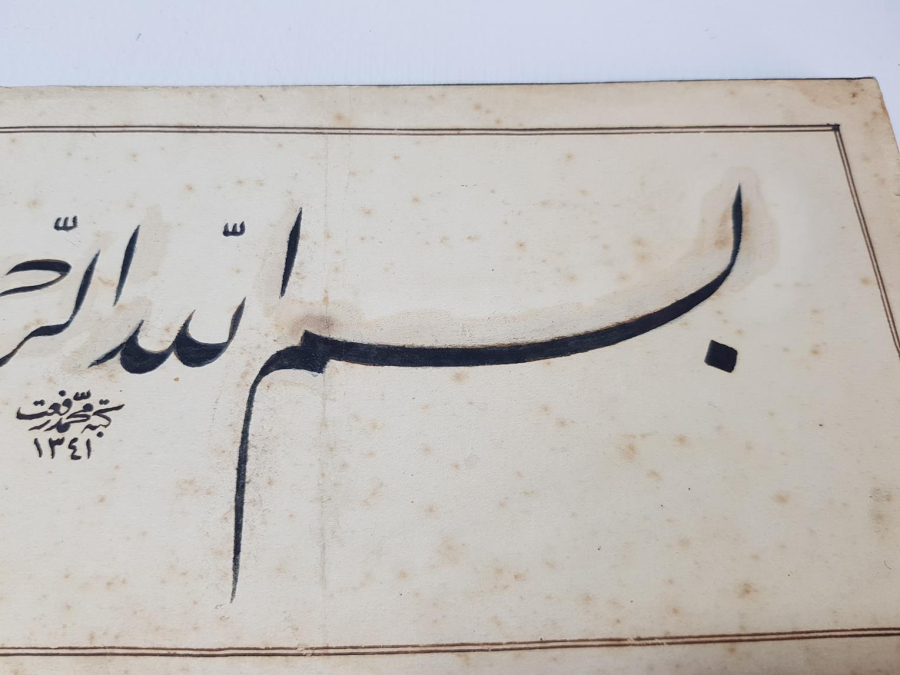 بسم اللّه الرّح
كتبه محمّد رفعت
١٣٤١